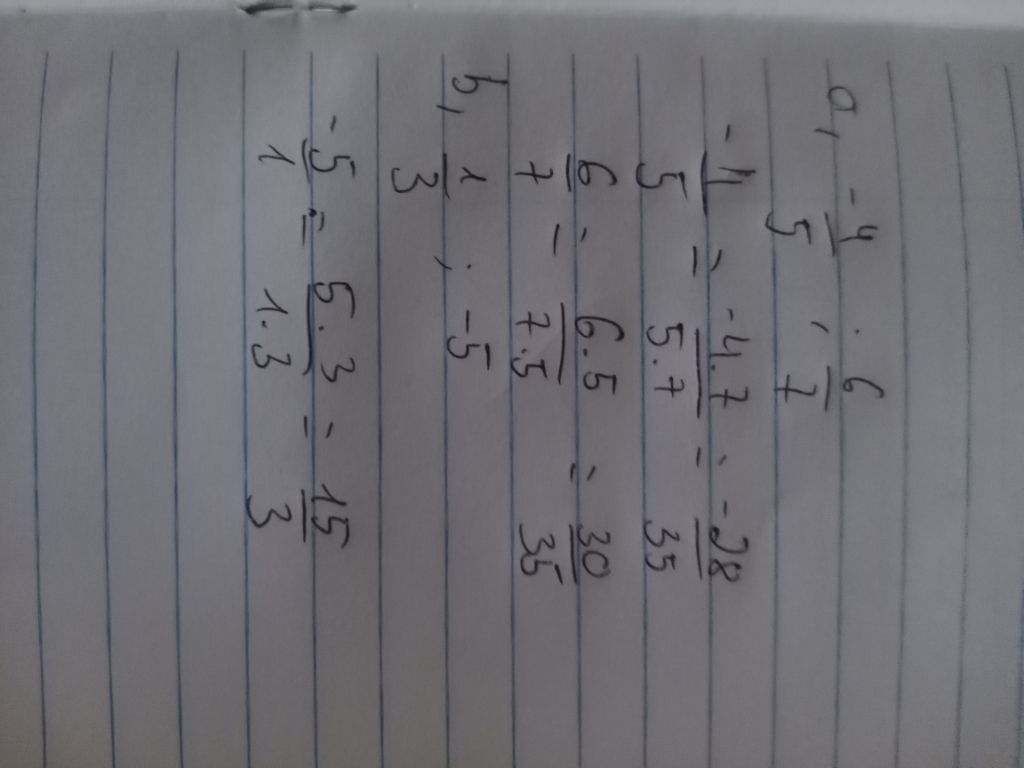 a, -4/5 ; 6/7
-4/5 = -4.7/5.7 = -28/35
6/7 = 6.5/7.5 = 30/35
b, 1/3 ; -5
-5/1 = 5.3/1.3 = 15/3